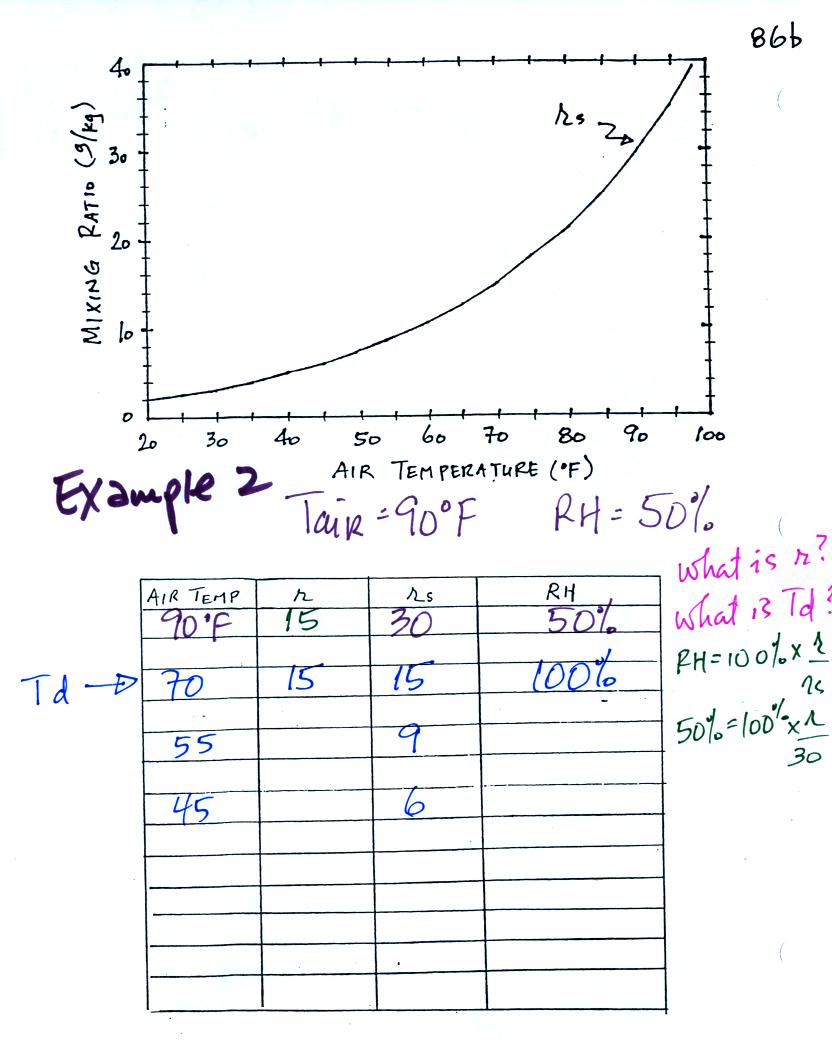 86b
40
30
20
10
0
MIXING RATIO (g/kg)
rs
20 30 40 50 60 70 80 90 100
AIR TEMPERATURE (°F)
Example 2
Tair = 90°F RH = 50%
what is r?
what is Td?
RH = 100% x r/rs
50% = 100% x r/30
AIR TEMP r rs RH
90°F 15 30 50%
Td → 70 15 15 100%
55 9
45 6